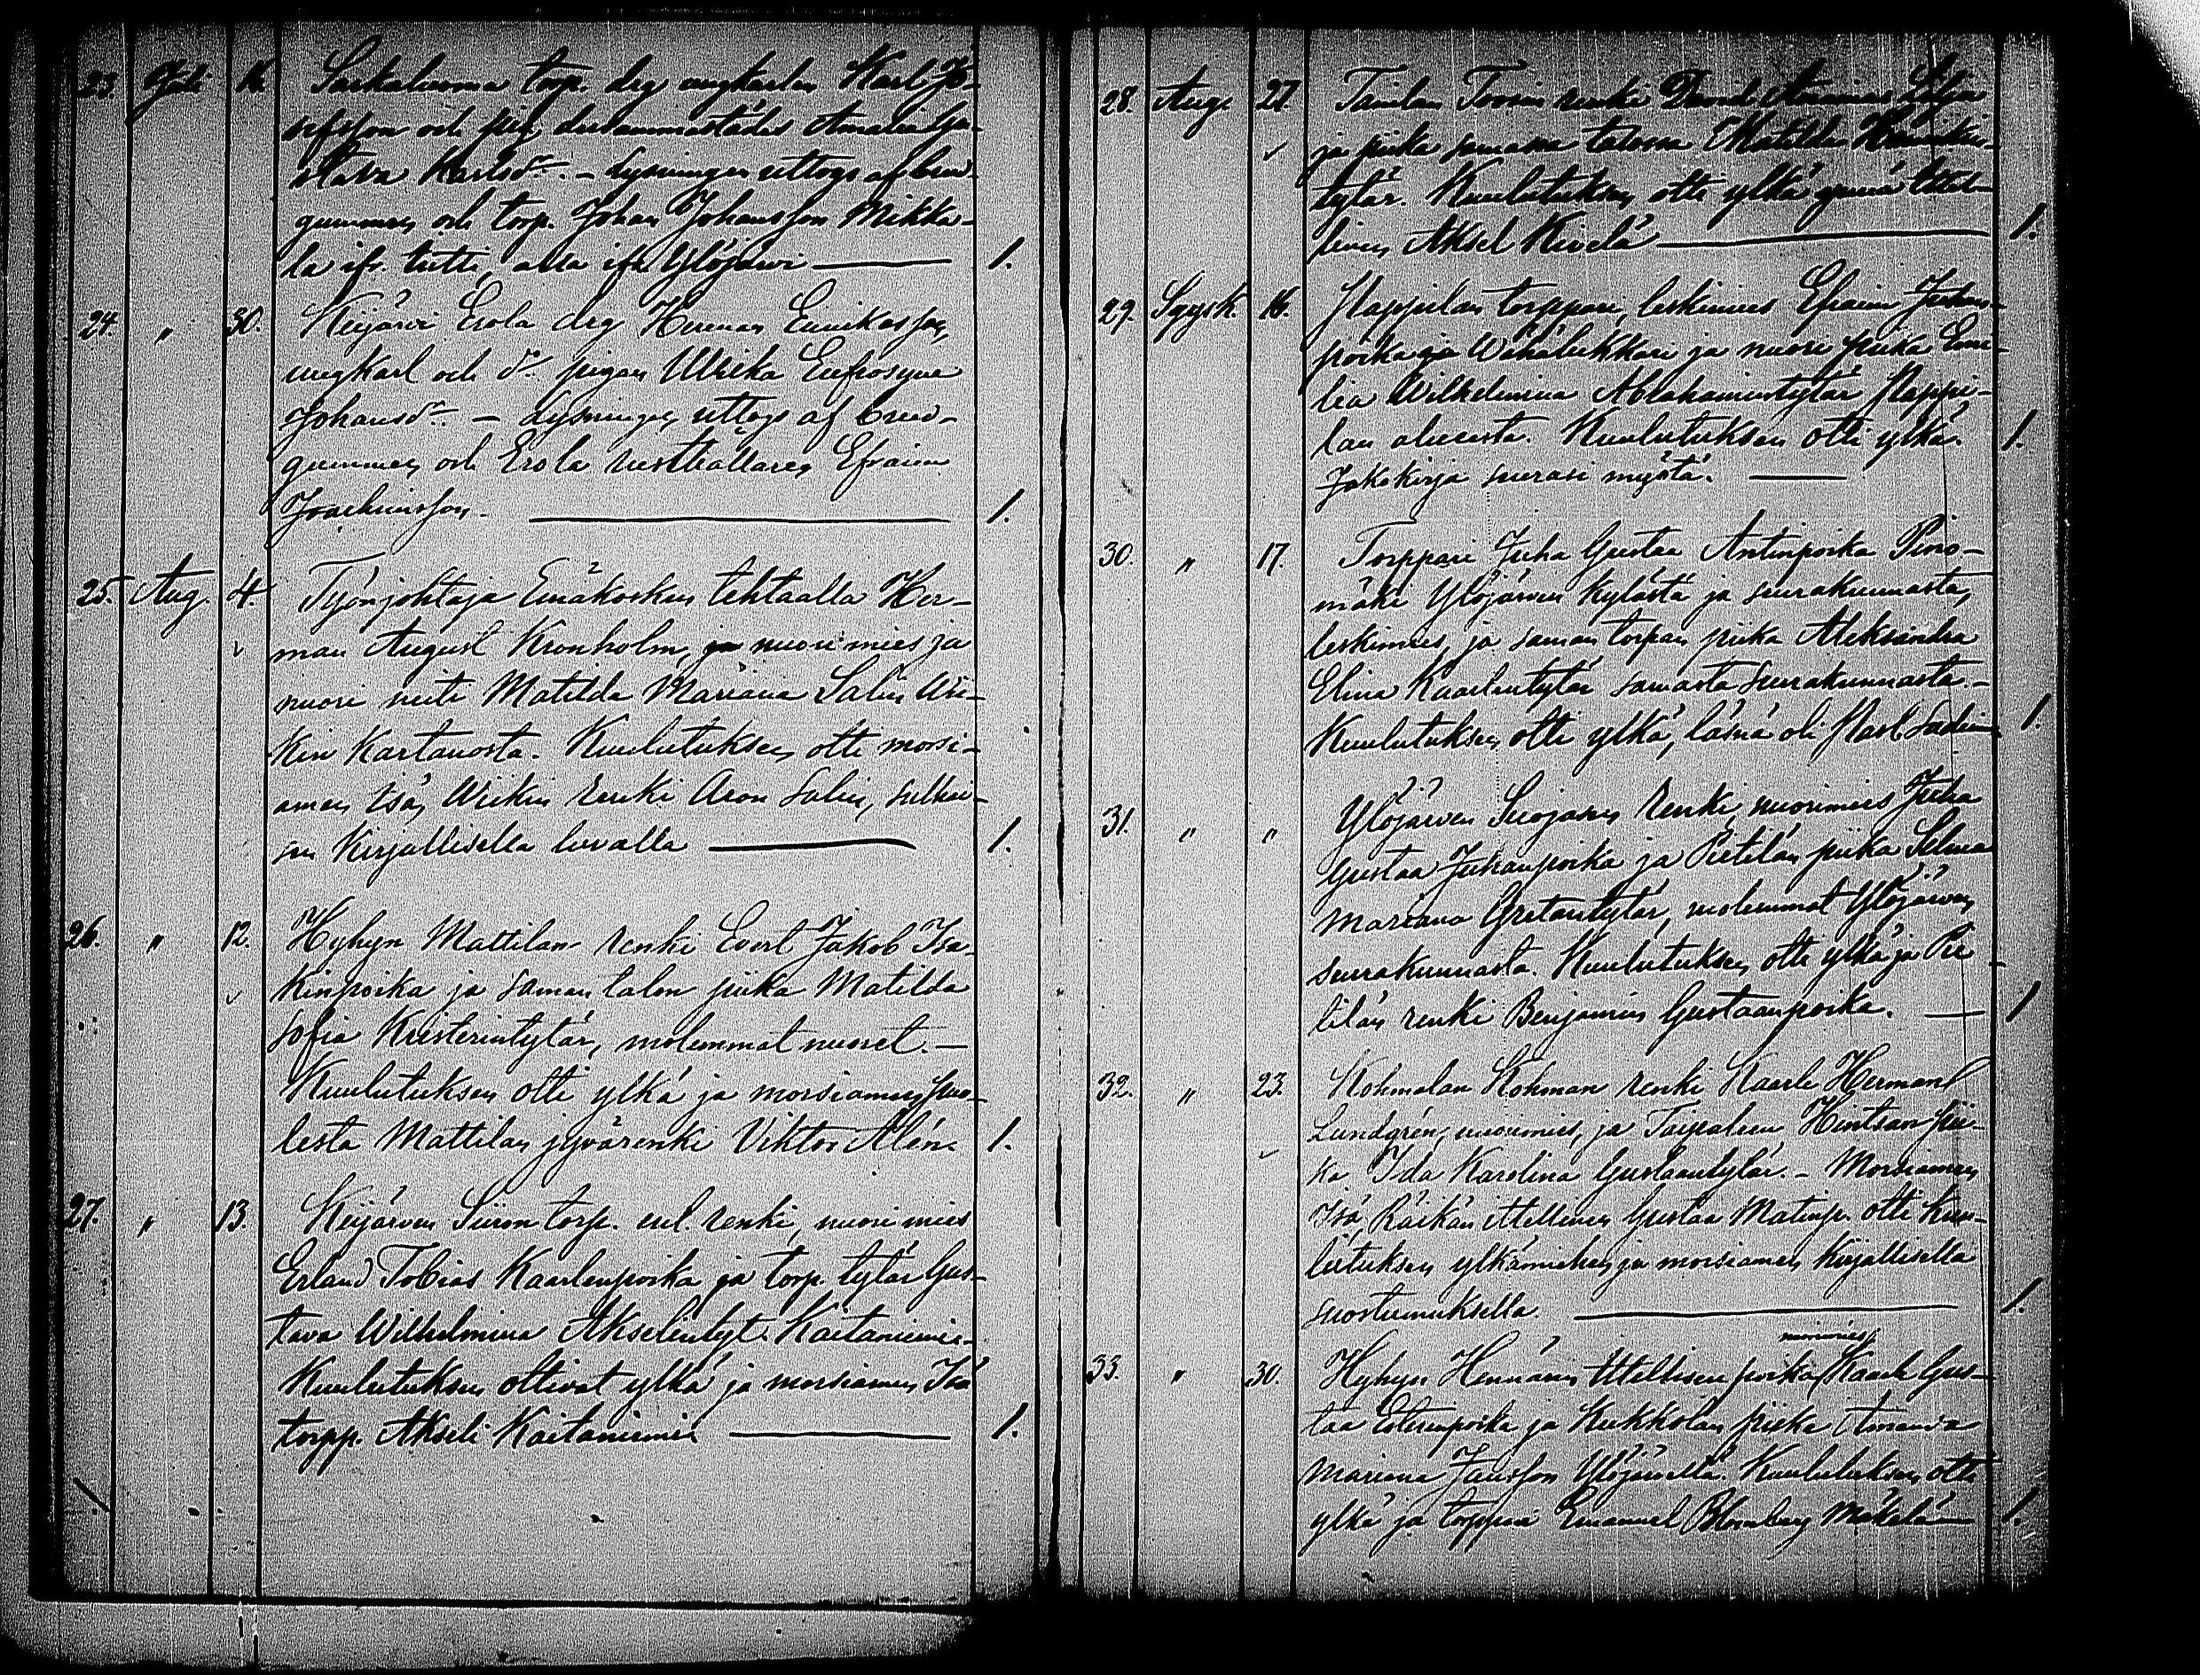 23. Juli 16. Saikaluoma torp. drg ungkarlen Karl Jo-
sefsson och pig. dersammastädes Amalia Gu-
stava Karlsdr. - Lysningen uttogs af brud-
gummen och torp. Johan Johansson Mikko-
la ifr. , alla ifr. Ylöjärvi 1.
24. " 30. Keijärvi Erola drg Herman Eerikasson,
ungkarl och do pigan Ulrika Eufrosyne
Johansdr. - Lysningen uttogs af brud-
gummen och Erola rusthållaren Efraim
Joachimsson. 1.
25. Aug. 4. Työnjohtaja Emäkosken tehtaalla Her-
man August Kronholm, nuori mies ja
nuori neiti Matilda Mariana Salin Wii-
kin Kartanosta. Kuulutuksen otti morsi-
amen isä, Wiikin renki Aron Salin, sulhai-
sen Kirjallisella luvalla 1.
26. " 12. Hyhyn Mattilan renki Evert Jakob Isa-
kinpoika ja saman talon piika Matilda
Sofia Kristerintytär, molemmat nuoret. -
Kuulutuksen otti ylkä ja morsiamen puo-
lesta Mattilan jyvärenki Viktor Alén. 1.
27. " 13. Keijärven Siiron torp. ent. renki, nuori mies
Erland Tobias Kaarlenpoika ja torp. tytär Gus-
tava Wilhelmina Akselintyt. Kaitaniemi.
Kuulutuksen ottivat ylkä ja morsiamen Isä
torpp. Akseli Kaitaniemi 1.
28. Aug. 27. Tanilan Toosin renki David Lilja
ja piika samassa talossa Matilda Henrikin-
tytär. Kuulutuksen otti ylkä ynnä Itsel-
linen Aksel Kivelä 1.
29. Syysk. 16. Nappilan torppari, leskimies Efraim Juhan-
poika Wähälukkari ja nuori piika Emi-
lia Wilhelmina Abrahamintytär Nappi-
lan alueesta. Kuulutuksen otti ylkä. 1.
Jakokirja seurasi myötä.
30. " 17. Torppari Juha Gustaa Antinpoika Pino-
mäki Ylöjärven Kylästä ja seurakunnasta,
leskimies, ja saman torpan piika Aleksandra
Elina Kaarlentytär samasta seurakunnasta. -
Kuulutuksen otti ylkä, läsnä oli 1.
31. " " Ylöjärven Suojasen Renki, nuorimies Juha
Gustaa Juhanpoika ja Pietilän piika Selma
Mariana Gretantytär, molemmat Ylöjärven
seurakunnasta. Kuulutuksen otti ylkä ja Pie
tilän renki Benjamin Gustaanpoika. 1
32. " 23. Kohmalan Kohman renki Kaarle Herman
Lundgrén, nuorimies, ja Taipaleen Hintsan pii-
ka Ida Karolina Gustaantytär. - Morsiamen
isä, Räikän itsellinen Gustaa Matinp. otti kuu-
lutuksen ylkämiehen ja morsiamen kirjallisella
suostumuksella. 1.
33. " 30. Hyhyn Hennärin Itsellisen poika, nuorimies, Kaarle Gus-
taa ja Kukkolan piika Amanda
Mariana Jansson Ylöjärveltä. Kuulutuksen otti
ylkä ja torppari Emanuel Blomberg Mäkelä 1.